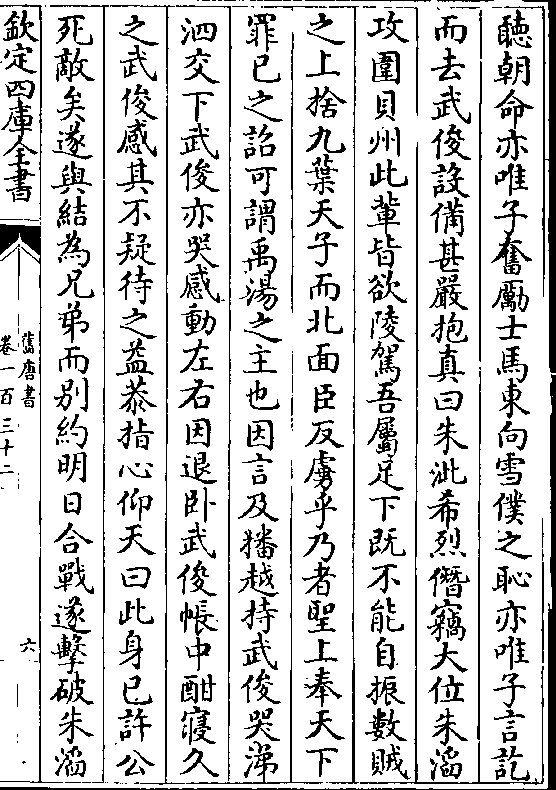 聽朝命亦唯子奮勵士馬東向雪僕之恥亦唯子言訖
而去武俊設備甚嚴抱真曰朱泚希烈僭竊大位朱滔
攻圍貝州此輩皆欲陵駕吾屬足下既不能自振數賊
之上捨九葉天子而北面臣反虜乎乃者聖上奉天下
罪已之詔可謂禹湯之主也因言及播越持武俊哭涕
泗交下武俊亦哭感動左右因退卧武俊帳中酣寢久
之武俊感其不疑待之益恭指心仰天曰此身已許公
死敵矣遂與結為兄弟而別約明日合戰遂擊破朱滔
欽定四庫全書
舊唐書
卷一百三十二
六